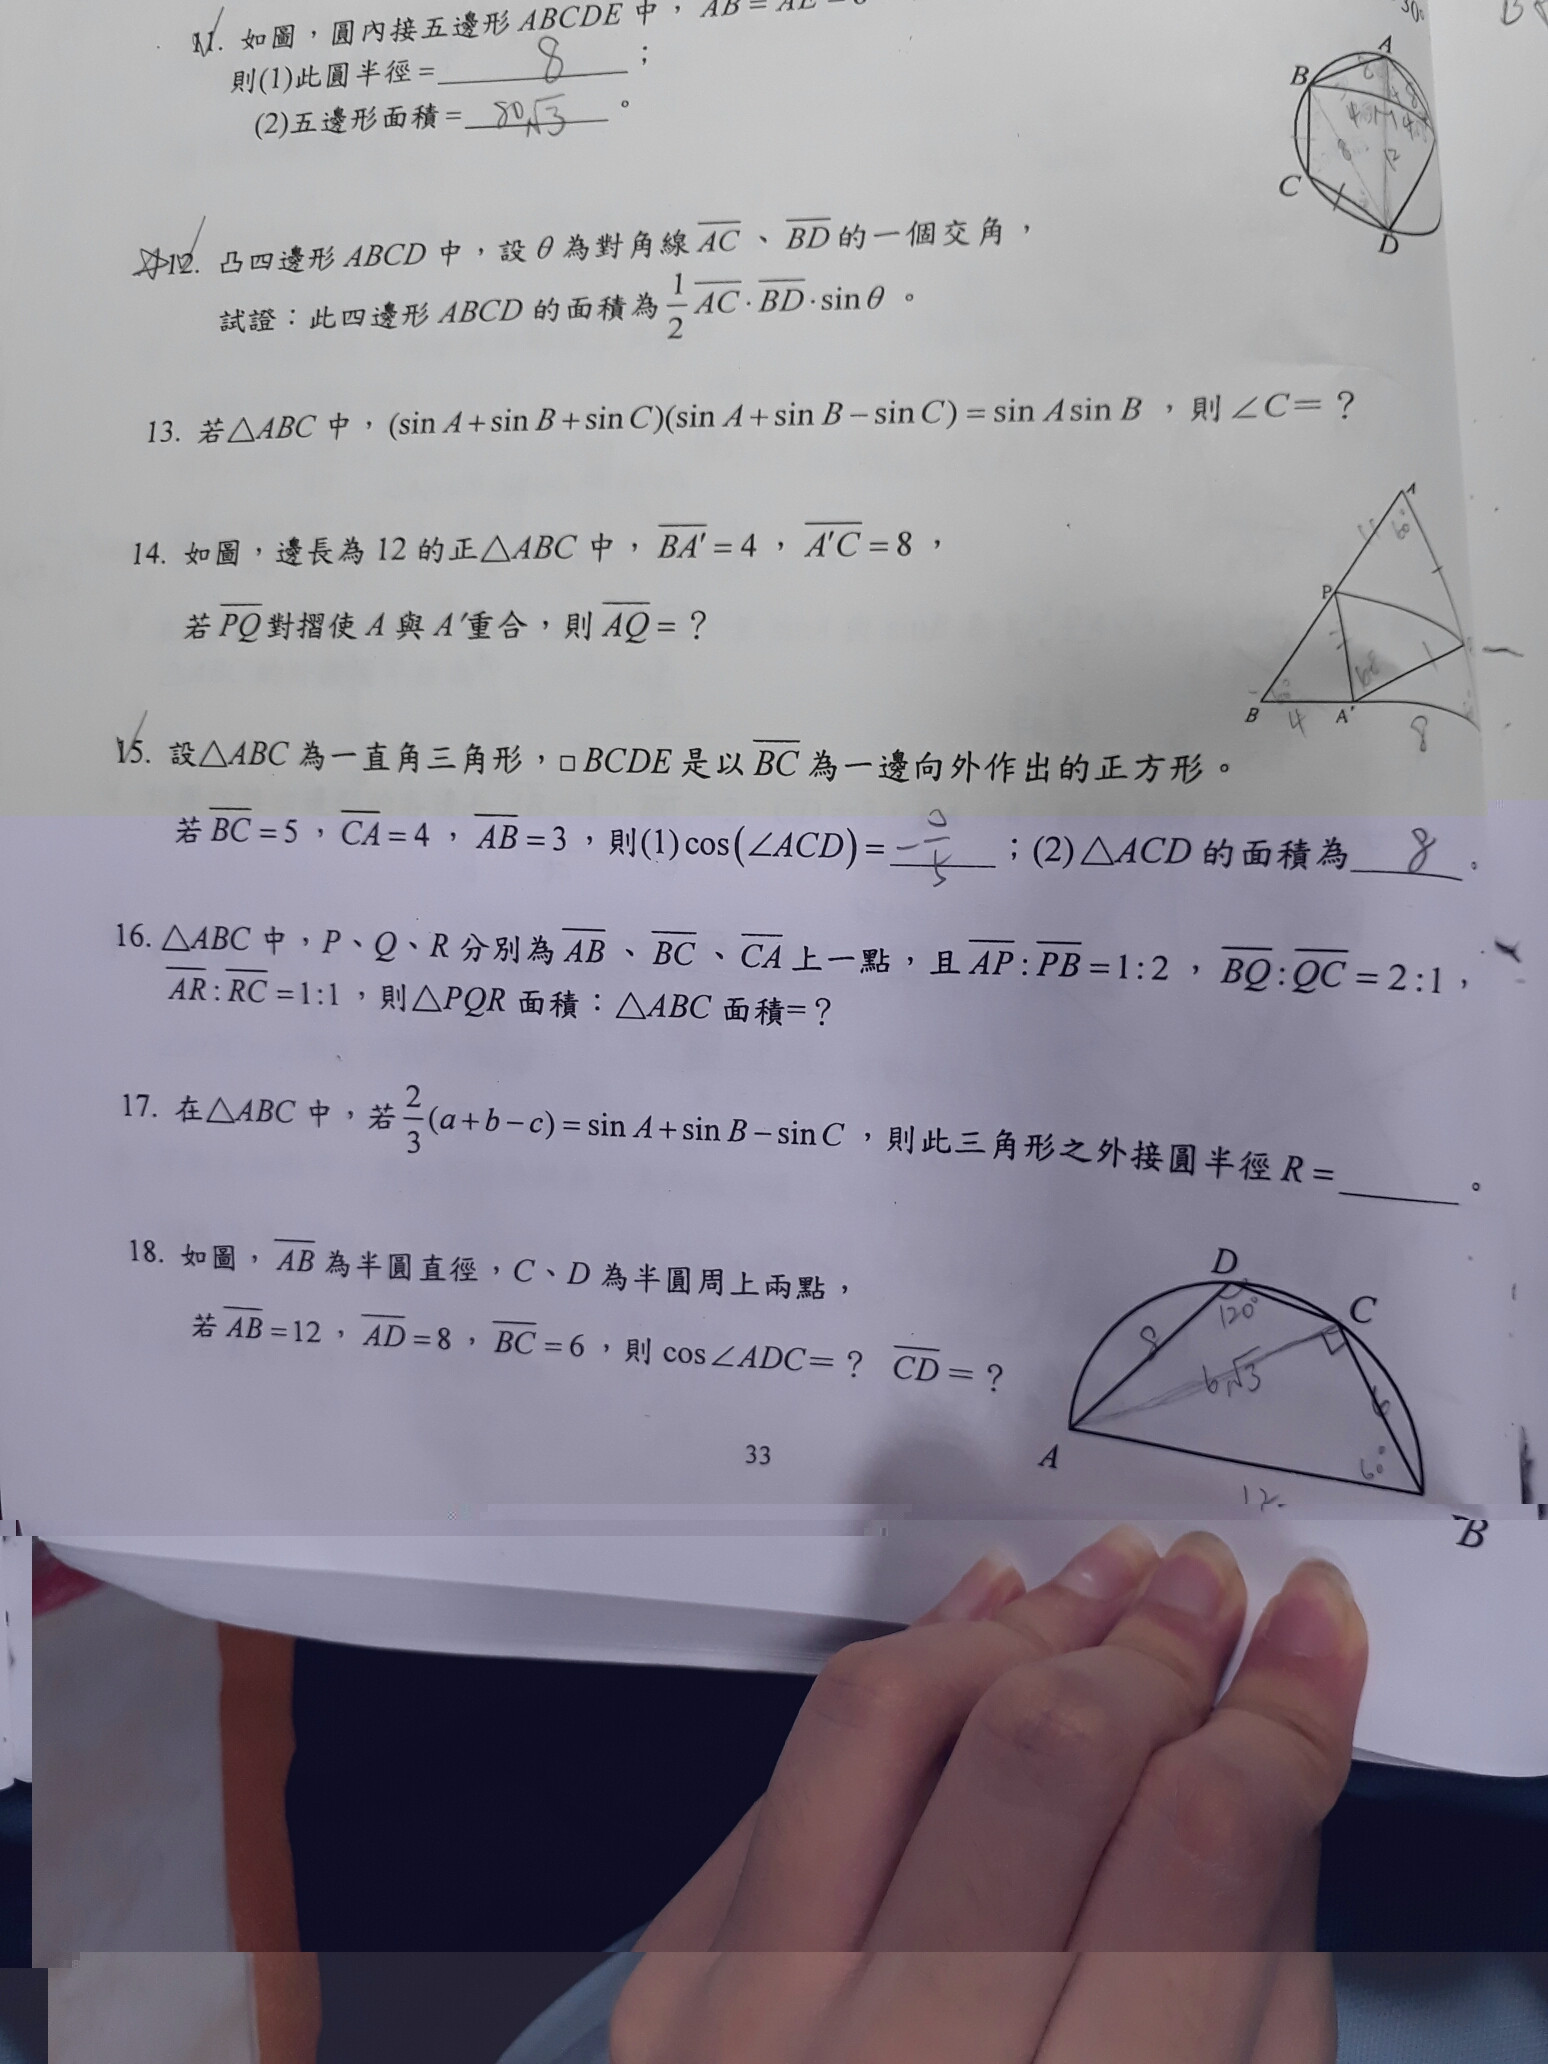 11. 如圖，圓內接五邊形 ABCDE 中，AB = AE = 8
則(1)此圓半徑= 8 ；
(2)五邊形面積= 80√3 。
12. 凸四邊形 ABCD 中，設 θ 為對角線 AC、BD 的一個交角，
試證：此四邊形 ABCD 的面積為 1/2 AC · BD · sin θ 。
13. 若△ABC 中，(sin A + sin B + sin C)(sin A + sin B − sin C) = sin A sin B ，則 ∠C = ？
14. 如圖，邊長為 12 的正△ABC 中，BA′ = 4，A′C = 8，
若 PQ 對摺使 A 與 A′重合，則 AQ = ？
15. 設△ABC 為一直角三角形，□BCDE 是以 BC 為一邊向外作出的正方形。
若 BC = 5，CA = 4，AB = 3，則(1) cos(∠ACD) = −3/5 ；(2) △ACD 的面積為 8 。
16. △ABC 中，P、Q、R 分別為 AB、BC、CA 上一點，且 AP : PB = 1 : 2，BQ : QC = 2 : 1，
AR : RC = 1 : 1，則△PQR 面積：△ABC 面積=？
17. 在△ABC 中，若 2/3 (a + b − c) = sin A + sin B − sin C，則此三角形之外接圓半徑 R = 。
18. 如圖，AB 為半圓直徑，C、D 為半圓周上兩點，
若 AB = 12，AD = 8，BC = 6，則 cos∠ADC = ？ CD = ？
33
A
B
C
D
8
8
4
12
A
60°
P
B
4
A′
8
D
120°
C
8
6√3
6
60°
A
12
B